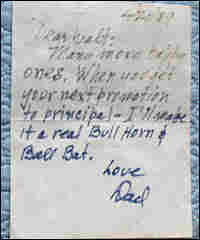 Dear Walt-
Many more happy
ones. When you get
your next promotion
to principal - I'll make
it a real Bull Horn &
Ball Bat.
Love
Dad